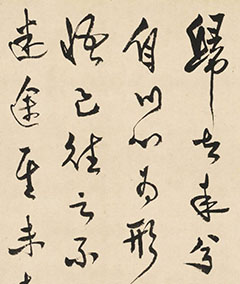 歸去來兮
自以心為形
悟已往之不
迷途其未